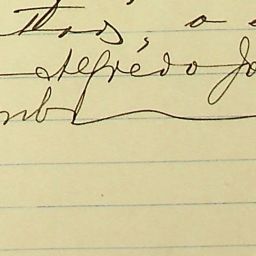 ttos, o
Alfredo Jo
mb